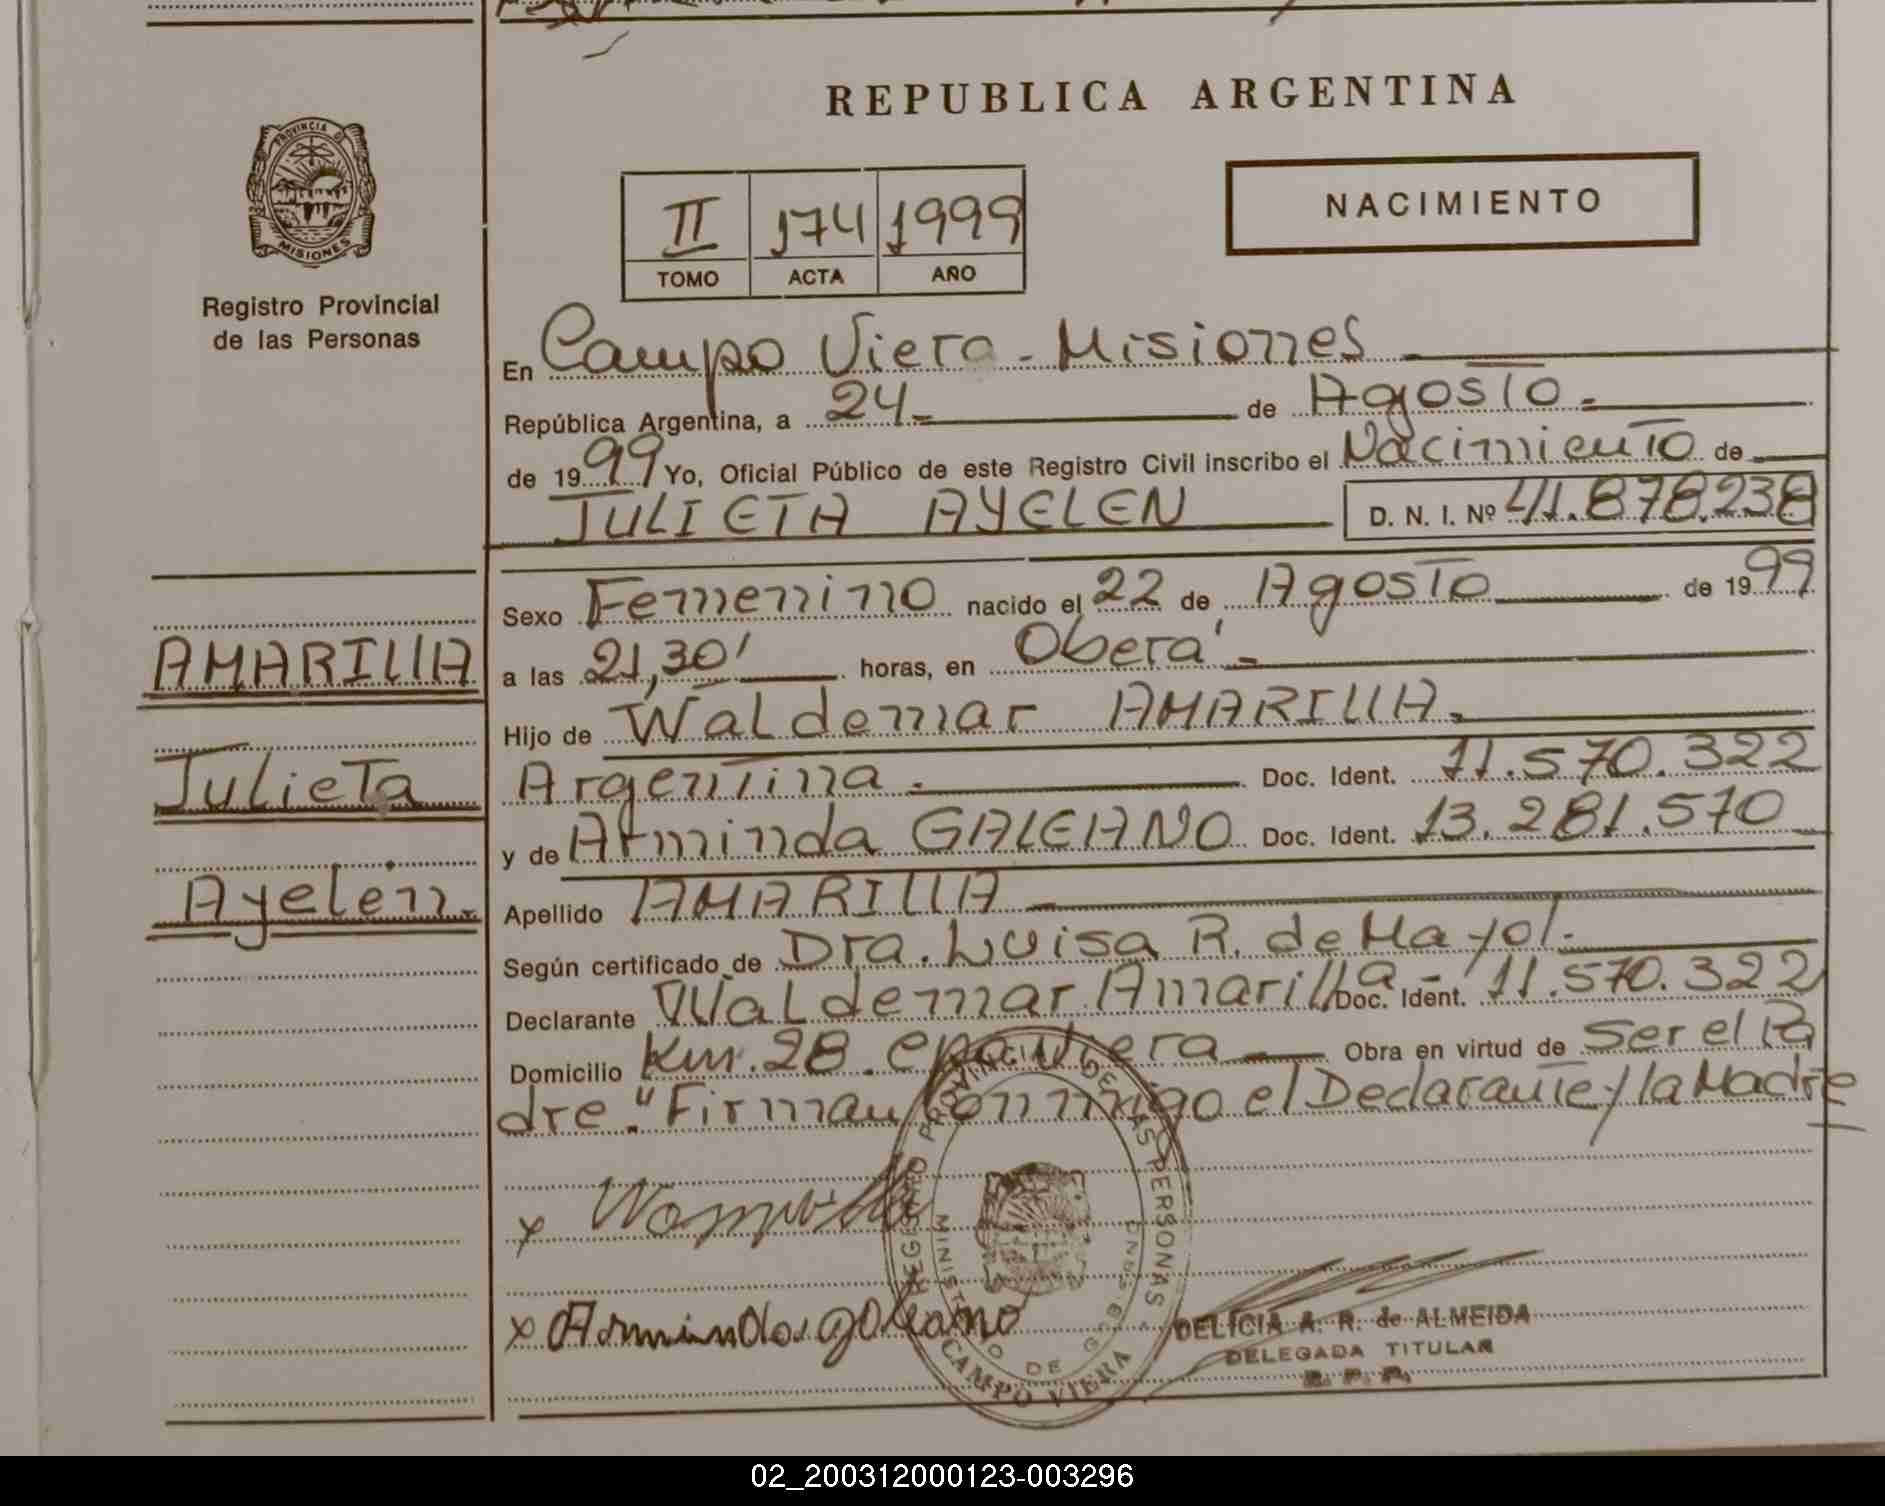 REPUBLICA ARGENTINA
PROVINCIA DE
MISIONES
Registro Provincial
de las Personas
II 174 1999
TOMO ACTA AÑO
NACIMIENTO
En Campo Viera - Misiones
República Argentina, a 24 de Agosto
de 1999 Yo, Oficial Público de este Registro Civil inscribo el Nacimiento de
JULIETA AYELEN D. N. I. Nº 41.878.238
Sexo Femenino nacido el 22 de Agosto de 1999
a las 21,30' horas, en Oberá
Hijo de Waldemar AMARILLA.
Argentina. Doc. Ident. 11.570.322
y de Arminda GALEANO Doc. Ident. 13.281.570
Apellido AMARILLA
Según certificado de Dra. Luisa R. de Mayol.
Declarante Waldemar Amarilla - Doc. Ident. 11.570.322
Domicilio Km. 28. Obra en virtud de Ser el Pa
dre." Firman Conmigo el Declarante y la Madre
AMARILLA
Julieta
Ayelén.
x
x Arminda galeano
REGISTRO PROVINCIAL DE LAS PERSONAS
MINISTERIO DE GOBIERNO
CAMPO VIERA
DELICIA A. R. de ALMEIDA
DELEGADA TITULAR
R. P. P.
02_200312000123-003296